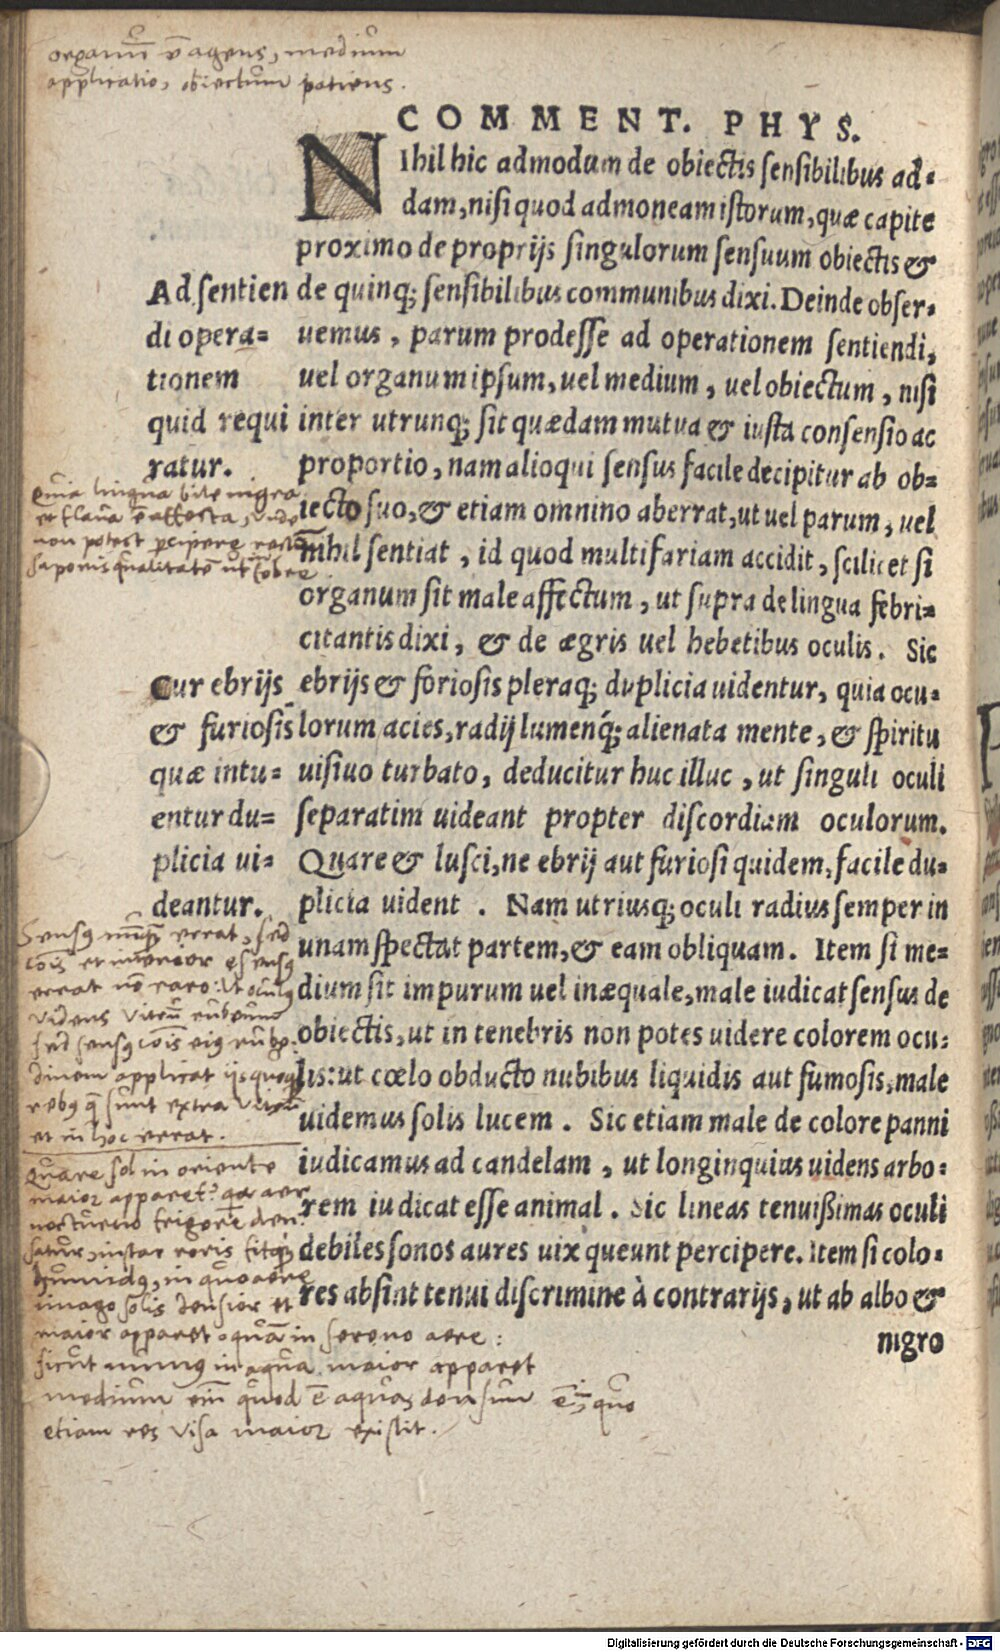 organũ ẽ agens, medium
applicatio, obiectum patiens.
COMMENT. PHYS.
NIhil hic admodum de obiectis sensibilibus ad-
dam, nisi quod admoneam istorum, quæ capite
proximo de proprijs singulorum sensuum obiectis &
de quinq; sensibilibus communibus dixi. Deinde obser-
uemus, parum prodesse ad operationem sentiendi,
uel organum ipsum, uel medium, uel obiectum, nisi
inter utrunq; sit quædam mutua & iusta consensio ac
proportio, nam alioqui sensus facile decipitur ab ob-
iecto suo, & etiam omnino aberrat, ut uel parum, uel
nihil sentiat, id quod multifariam accidit, scilicet si
organum sit male affectum, ut supra de lingua febri-
citantis dixi, & de ægris uel hebetibus oculis. Sic
ebrijs & foriosis pleraq; duplicia uidentur, quia ocu-
lorum acies, radij lumenq́; alienata mente, & spiritu
uisiuo turbato, deducitur huc illuc, ut singuli oculi
separatim uideant propter discordiam oculorum.
Quare & lusci, ne ebrij aut furiosi quidem, facile du-
plicia uident. Nam utriusq; oculi radius semper in
unam spectat partem, & eam obliquam. Item si me-
dium sit impurum uel inæquale, male iudicat sensus de
obiectis, ut in tenebris non potes uidere colorem ocu-
lis: ut cœlo obducto nubibus liquidis aut fumosis, male
uidemus solis lucem. Sic etiam male de colore panni
iudicamus ad candelam, ut longinquius uidens arbo-
rem iudicat esse animal. Sic lineas tenuißimas oculi
debiles sonos aures uix queunt percipere. Item si colo-
res absint tenui discrimine à contrarijs, ut ab albo &
nigro
Ad sentien
di opera-
tionem
quid requi
ratur.
Quia lingua bile nigra
et flaua ẽ affecta, unde
non potest percipere
saporis qualitatẽ ut in febre
Cur ebrijs
& furiosis
quæ intu-
entur du-
plicia ui-
deantur.
errat, sed
cõis et interior sensus
errat nõ raro: Ut oculus
videns vitrũ rubeum
sed sensus cõis eius rube-
dinem applicat ijs quoq
rebus q̃ sunt extra vitrũ
et in hoc errat.
Quare sol in oriente
maior apparet? aer
nocturno frigore den-
satur, instar roris fitq
humidus, in quo aere
imago solis densior et
maior apparet quã in sereno aere:
sicut numus in aqua maior apparet
medium enim quod ẽ aqua, densum ẽ, quo
etiam res visa maior existit.
Digitalisierung gefördert durch die Deutsche Forschungsgemeinschaft - DFG